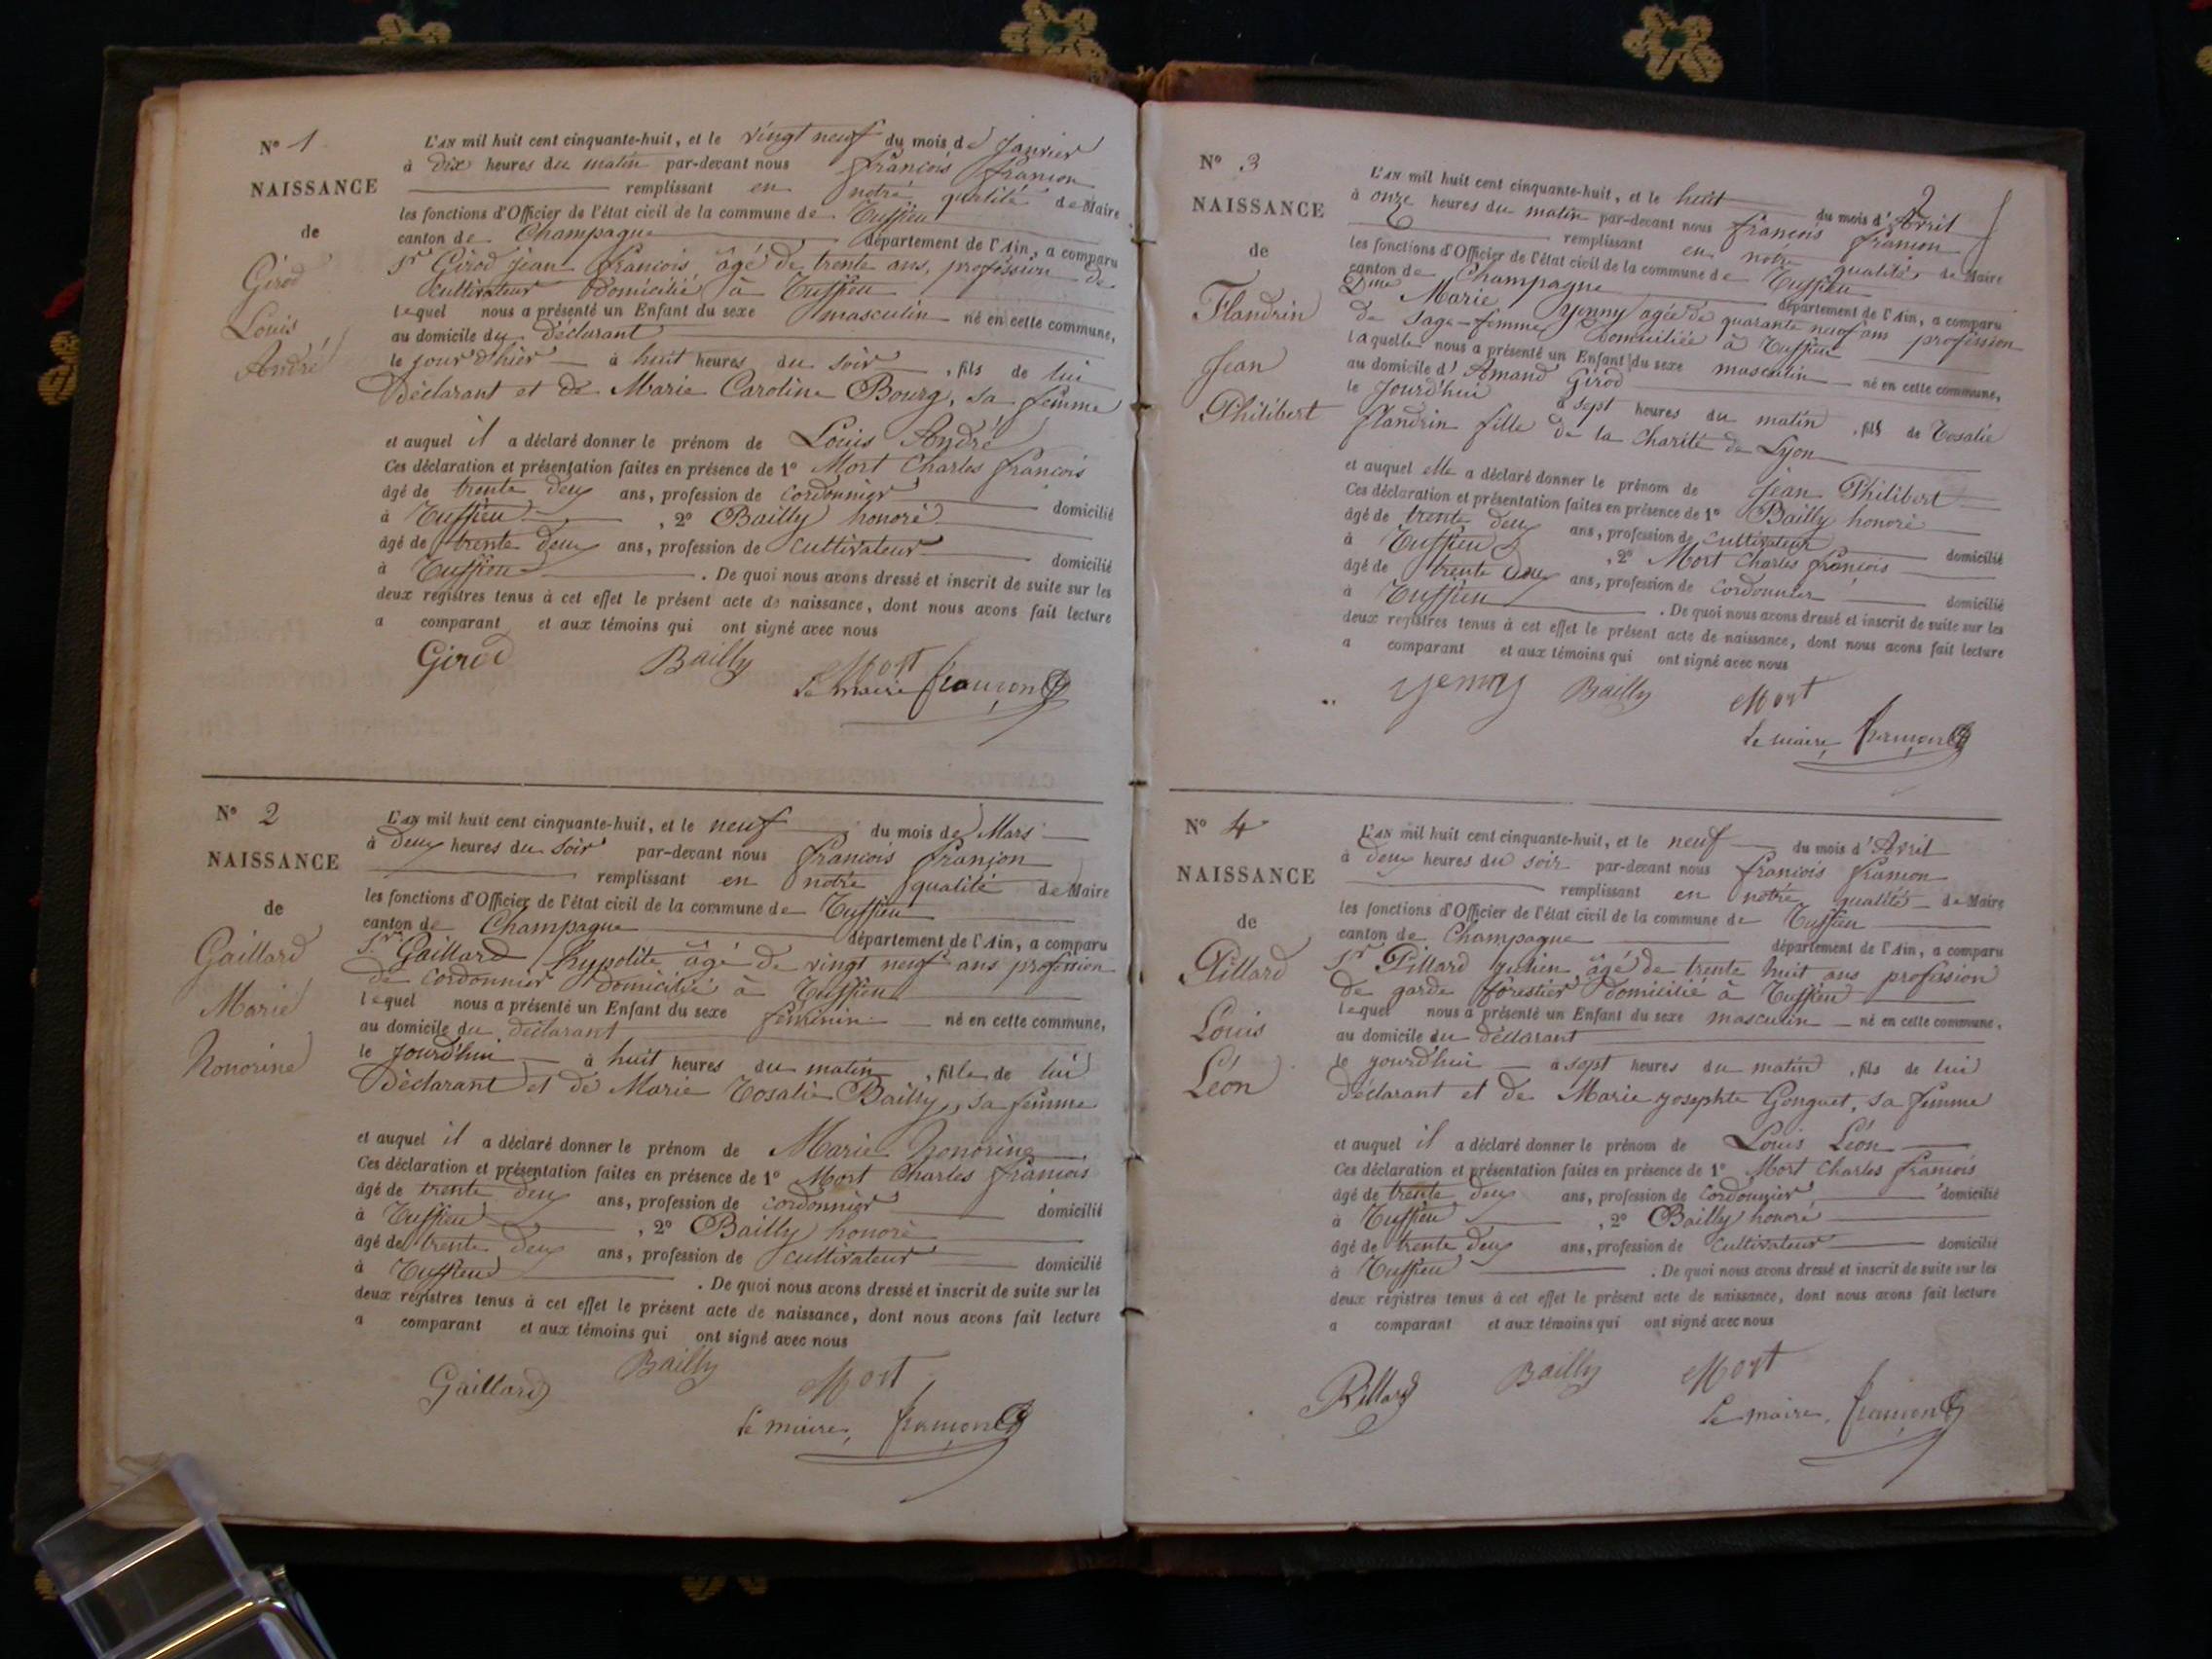 N° 1
NAISSANCE
de
Girod
Louis
André
L'AN mil huit cent cinquante-huit, et le vingt neuf du mois de Janvier
à dix heures du matin par-devant nous françois françon
remplissant en notre qualité de Maire
les fonctions d'Officier de l'état civil de la commune de Ruffieu
canton de Champagne département de l'Ain, a comparu
Sr Girod jean françois âgé de trente ans, profession de
cultivateur domicilié à Ruffieu
lequel nous a présenté un Enfant du sexe masculin né en cette commune,
au domicile du déclarant
le jour d'hier à huit heures du soir, fils de lui
Déclarant et de Marie Caroline Bourg, sa femme
et auquel il a déclaré donner le prénom de Louis André
Ces déclaration et présentation faites en présence de 1° Mort Charles françois
âgé de trente deux ans, profession de cordonnier domicilié
à Ruffieu, 2° Bailly honoré
âgé de trente deux ans, profession de cultivateur domicilié
à Ruffieu. De quoi nous avons dressé et inscrit de suite sur les
deux registres tenus à cet effet le présent acte de naissance, dont nous avons fait lecture
a comparant et aux témoins qui ont signé avec nous
Girod Bailly Mort
Le maire françon
N° 2
NAISSANCE
de
Gaillard
Marie
honorine
L'AN mil huit cent cinquante-huit, et le neuf du mois de Mars
à deux heures du soir par-devant nous françois françon
remplissant en notre qualité de Maire
les fonctions d'Officier de l'état civil de la commune de Ruffieu
canton de Champagne département de l'Ain, a comparu
Sr Gaillard hypolite âgé de vingt neuf ans profession
de cordonnier domicilié à Ruffieu
lequel nous a présenté un Enfant du sexe féminin né en cette commune,
au domicile du déclarant
le jourd'hui à huit heures du matin, fille de lui
Déclarant et de Marie Rosalie Bailly, sa femme
et auquel il a déclaré donner le prénom de Marie honorine
Ces déclaration et présentation faites en présence de 1° Mort Charles françois
âgé de trente deux ans, profession de cordonnier domicilié
à Ruffieu, 2° Bailly honoré
âgé de trente deux ans, profession de cultivateur domicilié
à Ruffieu. De quoi nous avons dressé et inscrit de suite sur les
deux registres tenus à cet effet le présent acte de naissance, dont nous avons fait lecture
a comparant et aux témoins qui ont signé avec nous
Gaillard Bailly Mort
Le maire, françon
2
N° 3
NAISSANCE
de
Flandrin
Jean
Philibert
L'AN mil huit cent cinquante-huit, et le huit du mois d'Avril
à onze heures du matin par-devant nous françois françon
remplissant en notre qualité de Maire
les fonctions d'Officier de l'état civil de la commune de Ruffieu
canton de Champagne département de l'Ain, a comparu
Dme Marie yenny agée de quarante neuf ans profession
de sage-femme domiciliée à Ruffieu
laquelle nous a présenté un Enfant du sexe masculin né en cette commune,
au domicile d'Amand Girod
le Jourd'hui à sept heures du matin, fils de Rosalie
flandrin fille de la charité de Lyon
et auquel elle a déclaré donner le prénom de Jean Philibert
Ces déclaration et présentation faites en présence de 1° Bailly honoré
âgé de trente deux ans, profession de cultivateur domicilié
à Ruffieu, 2° Mort Charles françois
âgé de trente deux ans, profession de cordonnier domicilié
à Ruffieu. De quoi nous avons dressé et inscrit de suite sur les
deux registres tenus à cet effet le présent acte de naissance, dont nous avons fait lecture
a comparant et aux témoins qui ont signé avec nous
yenny Bailly Mort
Le maire, françon
N° 4
NAISSANCE
de
Pillard
Louis
Léon
L'AN mil huit cent cinquante-huit, et le neuf du mois d'Avril
à deux heures du soir par-devant nous françois françon
remplissant en notre qualité de Maire
les fonctions d'Officier de l'état civil de la commune de Ruffieu
canton de Champagne département de l'Ain, a comparu
Sr Pillard julien âgé de trente huit ans profession
de garde forestier domicilié à Ruffieu
lequel nous a présenté un Enfant du sexe masculin né en cette commune,
au domicile du déclarant
le jourd'hui à sept heures du matin, fils de lui
déclarant et de Marie josephte Gonguet, sa femme
et auquel il a déclaré donner le prénom de Louis Léon
Ces déclaration et présentation faites en présence de 1° Mort Charles françois
âgé de trente deux ans, profession de cordonnier domicilié
à Ruffieu, 2° Bailly honoré
âgé de trente deux ans, profession de cultivateur domicilié
à Ruffieu. De quoi nous avons dressé et inscrit de suite sur les
deux registres tenus à cet effet le présent acte de naissance, dont nous avons fait lecture
a comparant et aux témoins qui ont signé avec nous
Pillard Bailly Mort
Le maire, françon